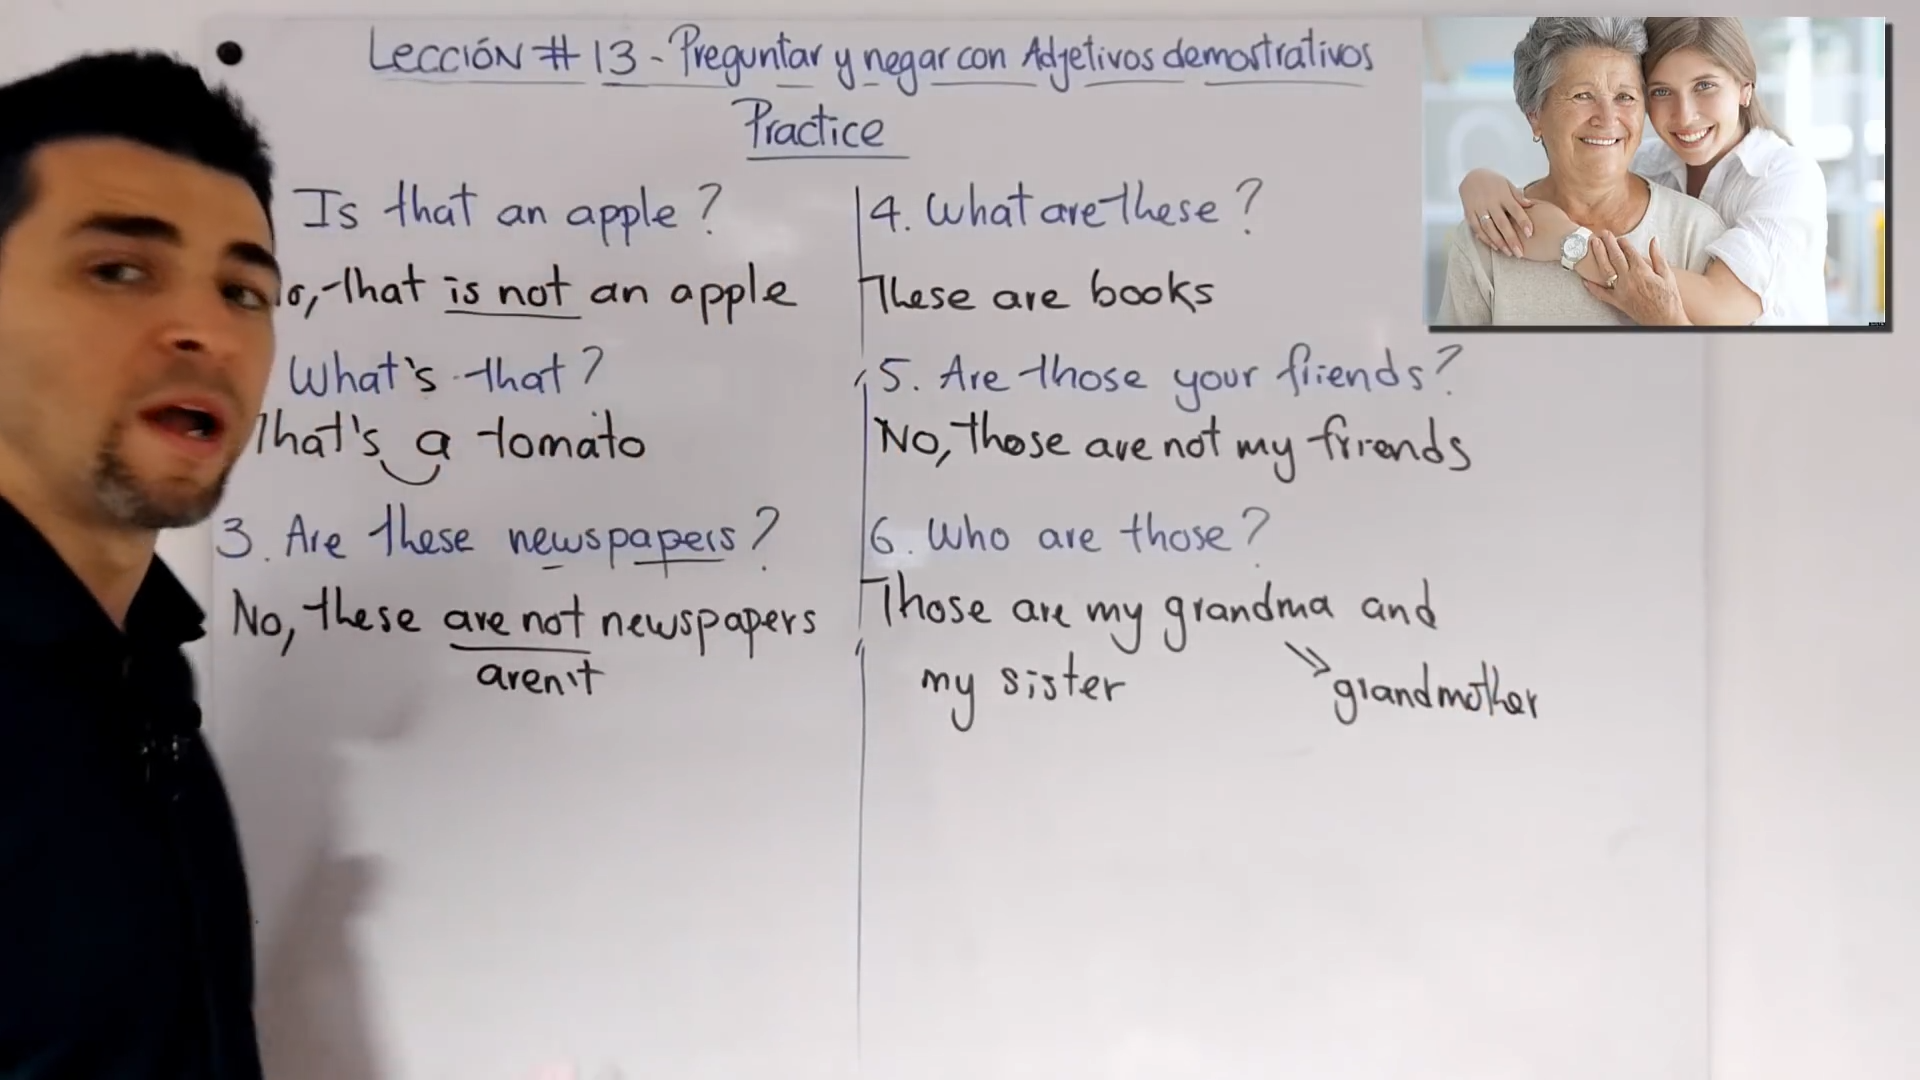 Lección # 13 - Preguntar y negar con Adjetivos demostrativos
Practice
Is that an apple?
that is not an apple
What's that?
That's a tomato
3. Are these newspapers?
No, these are not newspapers
aren't
4. What are these?
These are books
5. Are those your friends?
No, those are not my friends
6. Who are those?
Those are my grandma and
my sister
grandmother